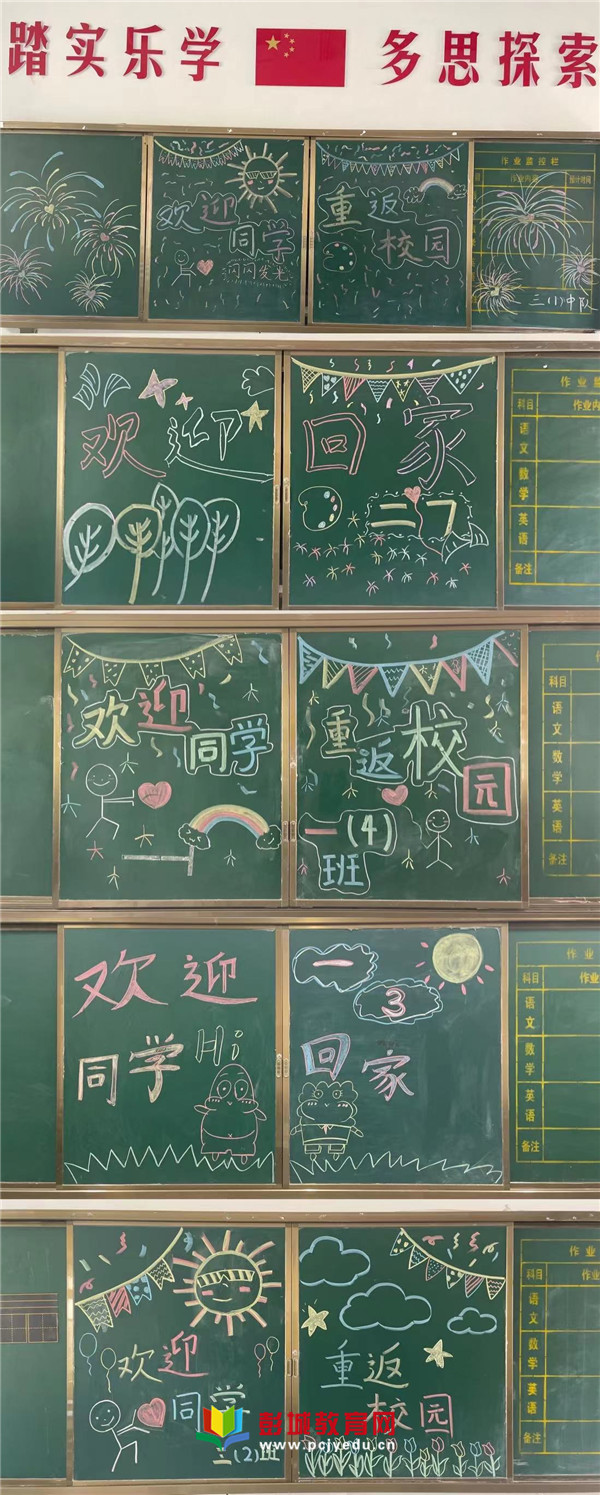 踏实乐学 多思探索
欢迎
同学
闪闪发光
重返
校园
作业监控栏
作业内容
预计时间
三(1)中队
欢迎
回家
二7
科目
作业内
语文
数学
英语
备注
欢迎
同学
重返校园
一(4)
班
科目
语文
数学
英语
备注
欢迎
同学 Hi
一
3
回家
作业
科目 作业
语文
数学
英语
备注
欢迎
同学
(2)班
重返
校园
作业
科目 作业
语文
数学
英语
备注
彭城教育网
www.pcjyedu.cn